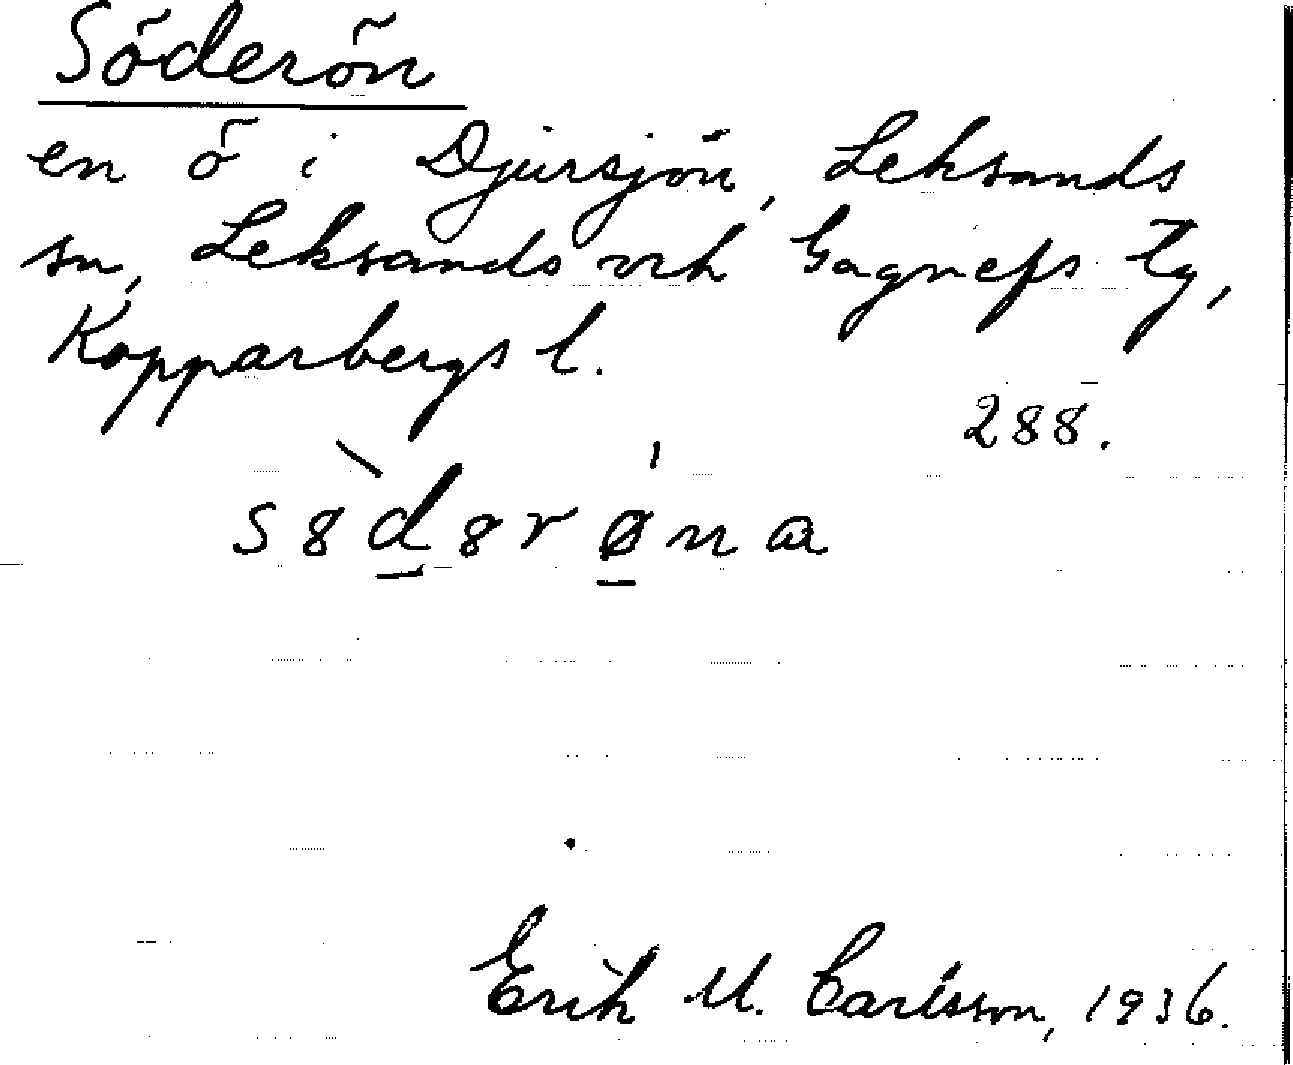 Söderön
en ö i Djursjön, Leksands
sn, Leksands och Gagnefs tg,
Kopparbergs l.
288.
s8̀d8rǿna
Erik M. Carlsson, 1936.